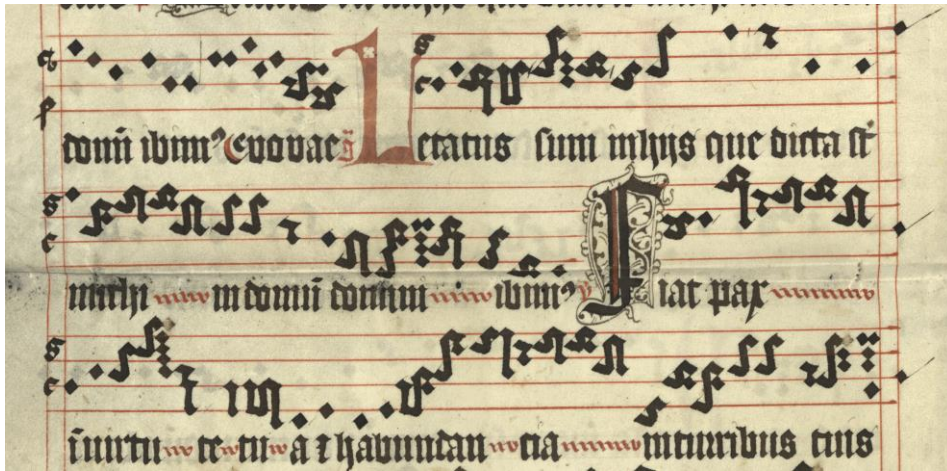 domū ibimꝰ Evovae Letatus sum inhijs que dicta st̄
michi in domū domini ibimꝰ Fiat pax
ī virtu te tu a ⁊ habundan cia in turribus tuis